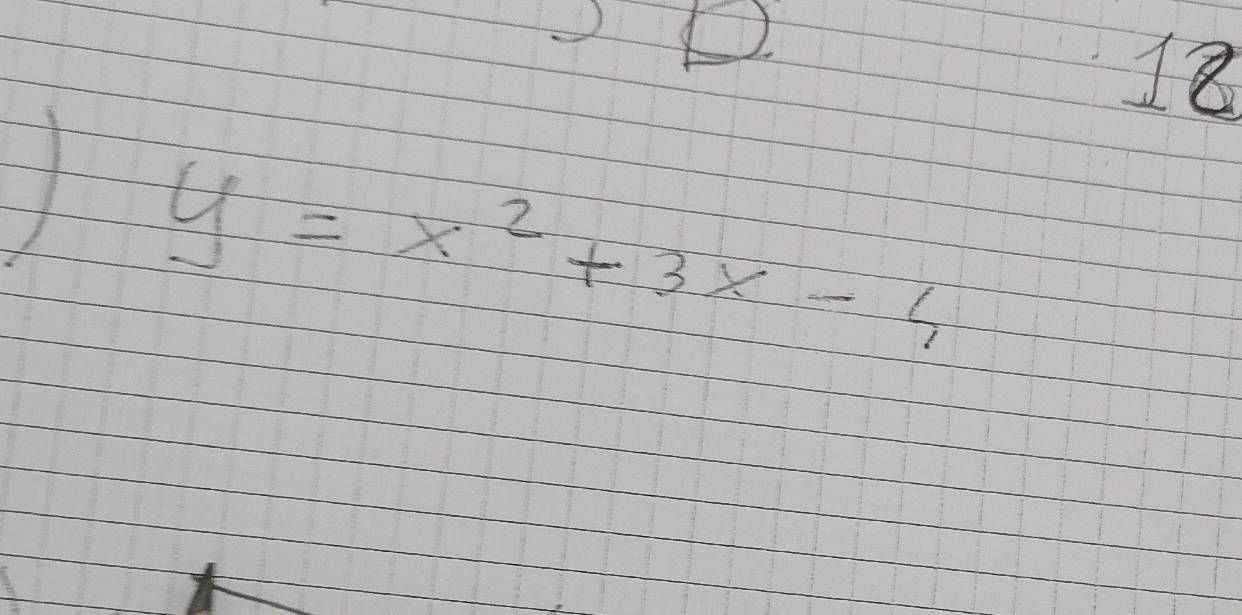 D
18
) y = x² + 3x - 4